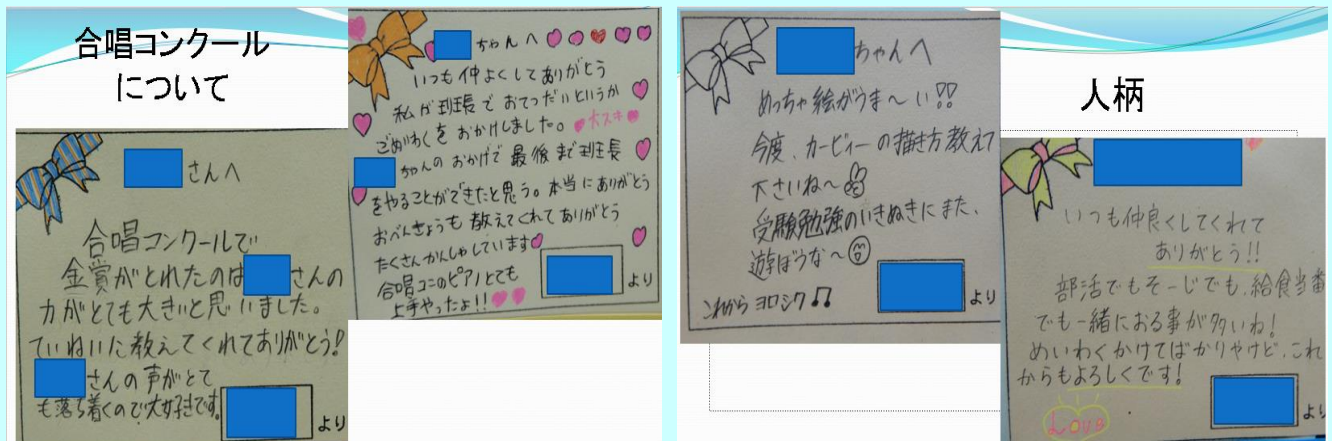 合唱コンクール
について
さんへ
合唱コンクールで
金賞がとれたのは さんの
力がとても大きいと思いました。
ていねいに教えてくれてありがとう!
さんの声がとて
も落ち着くので大好きです。
より
ちゃんへ
いつも仲よくしてありがとう
私が班長で おてつだいというか
ごめいわくを おかけしました。大スキ
ちゃんの おかげで 最後まで班長
をやることができたと思う。本当にありがとう
おべんきょうも 教えてくれてありがとう
たくさんかんしゃしています
合唱コンのピアノとても
上手やったよ!!
より
ちゃんへ
めっちゃ絵がうま〜い!!
今度、カービィーの描き方教えて
下さいね〜
受験勉強のいきぬきにまた、
遊ぼうな〜
これから ヨロシク♫
より
人柄
いつも仲良くしてくれて
ありがとう!!
部活でもそーじでも、給食当番
でも一緒におる事が多いね!
めいわくかけてばかりやけど、これ
からもよろしくです!
Love
より